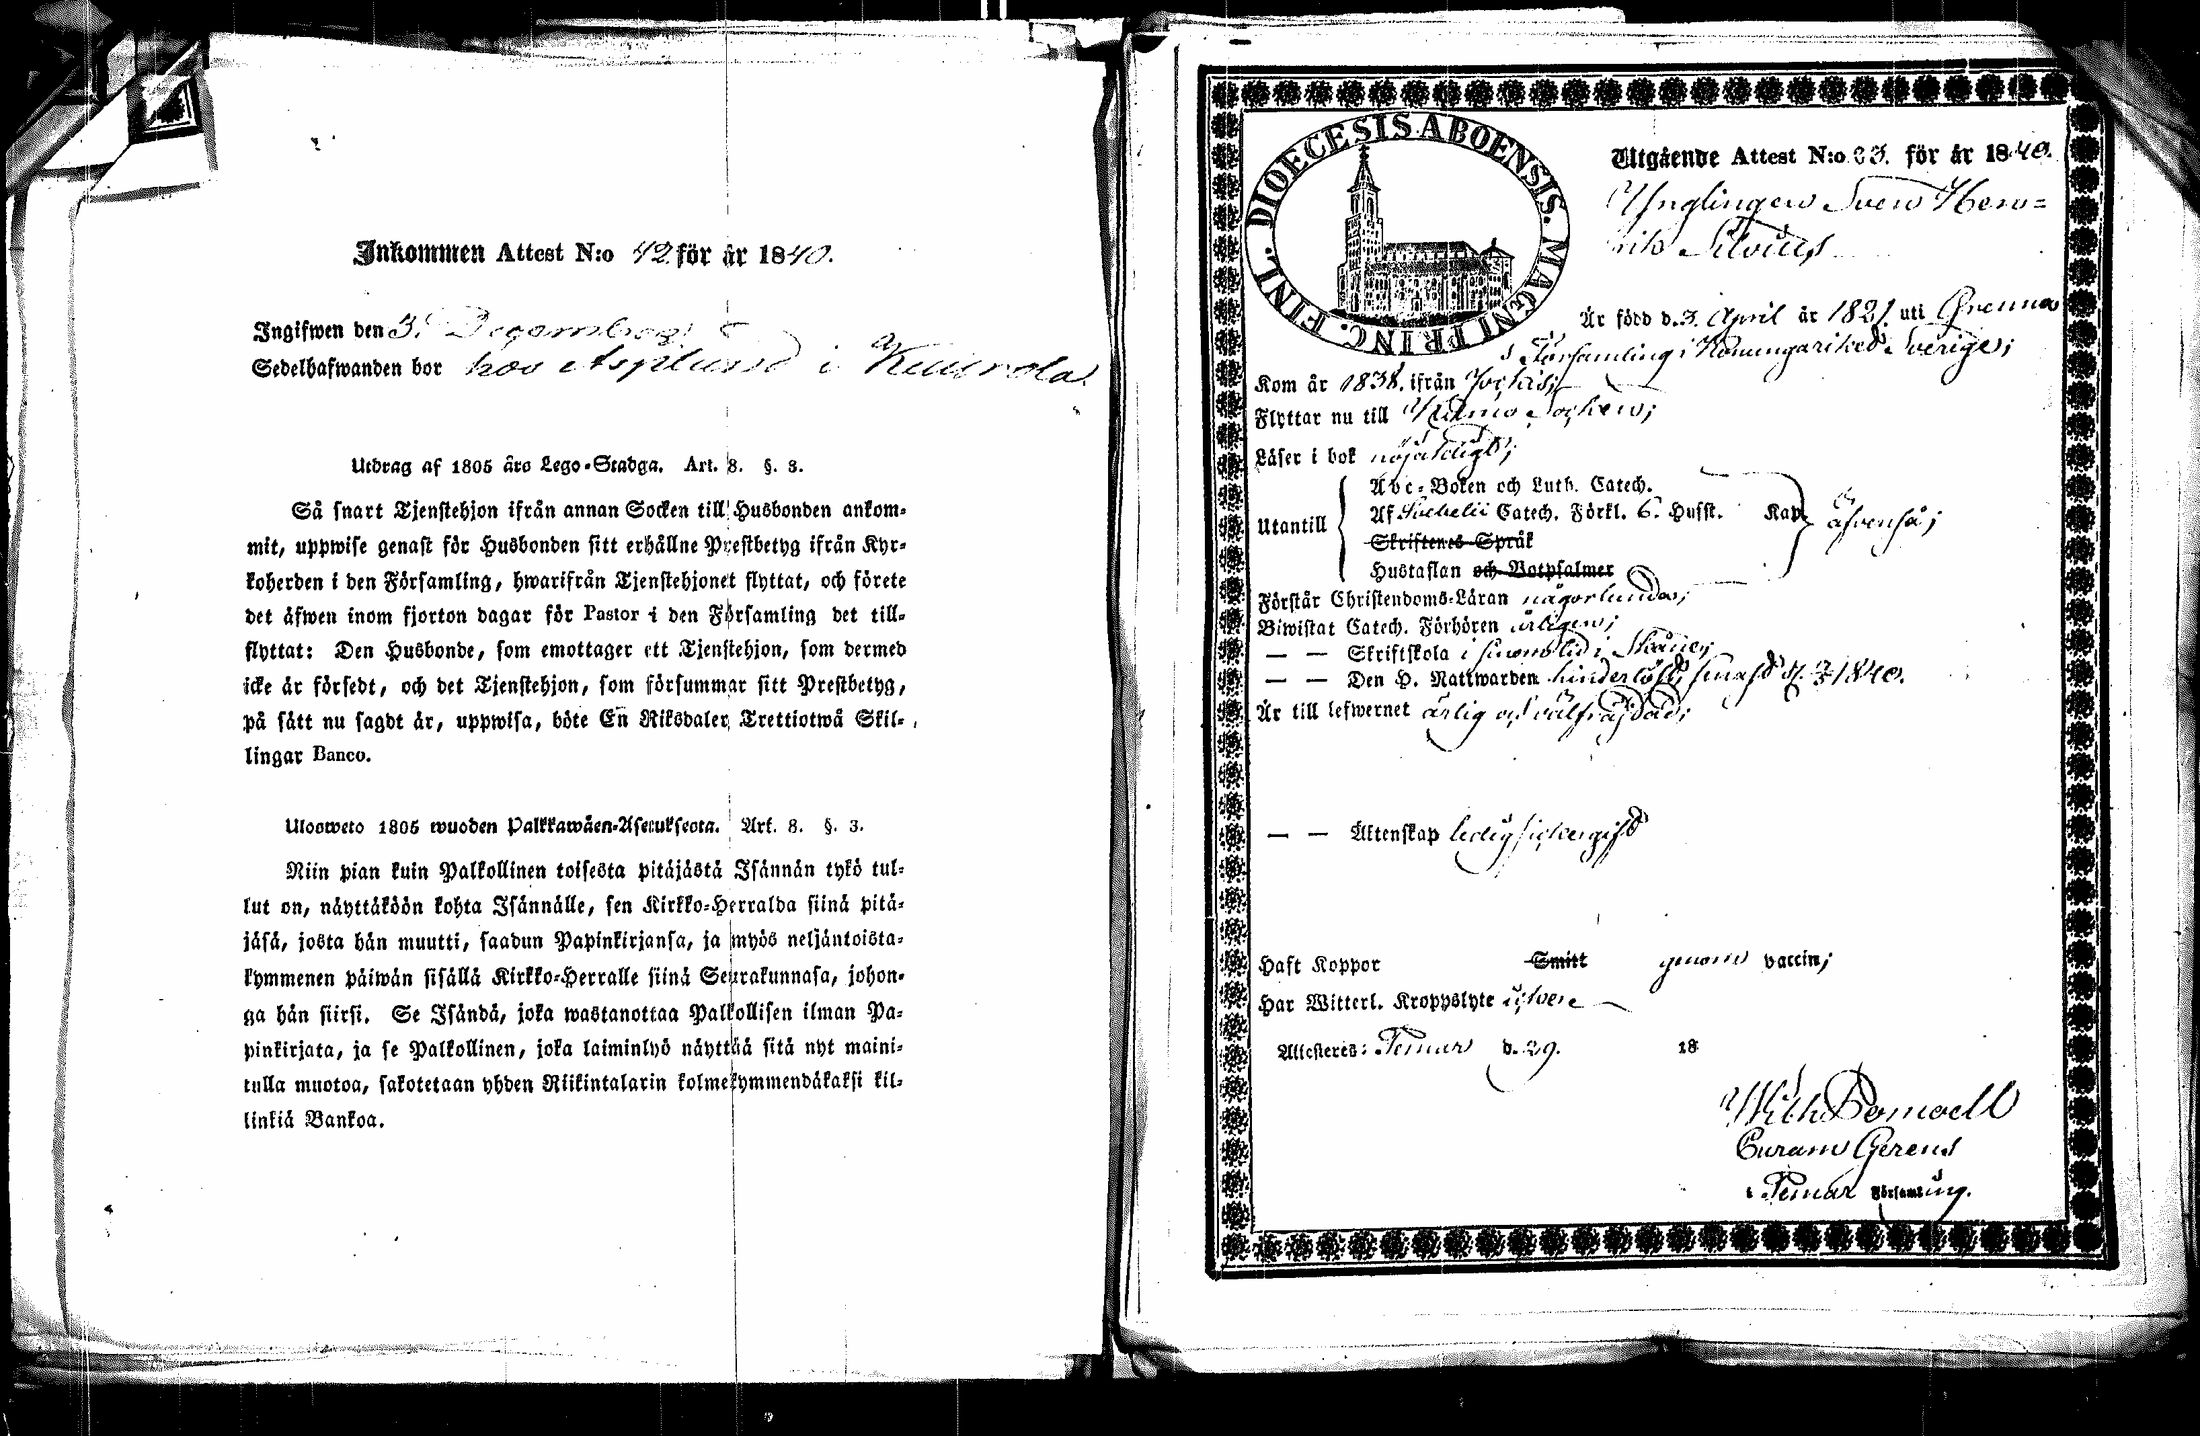 Inkommen Attest N:o 42 för år 1840.
Ingifwen den 3. December
Sedelhafwanden bor hos Asplund i
Utdrag af 1805 års Lego-Stadga. Art. 8. §. 3.
Så snart Tjenstehjon ifrån annan Socken till Husbonden ankom-
mit, uppwise genast för Husbonden sitt erhållne Prestbetyg ifrån Kyr-
koherden i den Församling, hwarifrån Tjenstehjonet flyttat, och förete
det äfwen inom fjorton dagar för Pastor i den Församling det till-
flyttat: Den Husbonde, som emottager ett Tjenstehjon, som dermed
icke är försedt, och det Tjenstehjon, som försummar sitt Prestbetyg,
på sätt nu sagdt är, uppwisa, böte En Riksdaler Trettiotwå Skil-
lingar Banco.
Ulosweto 1805 wuoden Palkkawäen-Asetuksesta. Art. 8. §. 3.
Niin pian kuin Palkollinen toisesta pitäjästä Isännän tykö tul-
lut on, näyttäköön kohta Isännälle, sen Kirkko-Herralda siinä pitä-
jäsä, josta hän muutti, saadun Papinkirjansa, ja myös neljäntoista-
kymmenen päiwän sisällä Kirkko-Herralle siinä Seurakunnasa, johon-
ga hän siirsi. Se Isändä, joka wastanottaa Palkollisen ilman Pa-
pinkirjata, ja se Palkollinen, joka laiminlyö näyttää sitä nyt maini-
tulla muotoa, sakotetaan yhden Riikintalarin kolmekymmendäkaksi kil-
linkiä Bankoa.
DIOECESIS ABOENSIS. MAGNI PRINC. FINL.
Utgående Attest N:o 33. för år 1840.
Ynglingen Sven Hen=
rik
Är född d. 3. April år 1821 uti Grenna
Församling i Konungariket Sverige;
Kom år 1838. ifrån Jockis;
Flyttar nu till Socken;
Läser i bok nöjaktigt;
Utantill
Abc-Boken och Luth. Catech.
Af Svebelii Catech. Förkl. 6. Husst. Kap. äfvenså;
Skriftenes Språk
Hustaflan och Botpsalmer
Förstår Christendoms-Läran någorlunda;
Biwistat Catech. Förhören årligen;
— — Skriftskola i sinom tid i
— — Den H. Nattwarden hinderlöst, senast 1840.
Är till lefwernet ärlig och välfräjdad;
— — Äktenskap ledig
Haft Koppor Smitt genom vaccin;
Har Witterl. Kroppslyte
Attesteres: Pemar d. 29. 18
Wilh
Curam Gerens
i Pemar Församling.